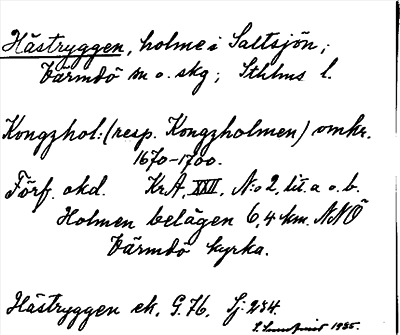 Hästryggen, holme i Saltsjön;
Värmdö m o. skg; Sthlms l.
Kongzhol: (resp. Kongzholmen) omkr.
1670-1700.
Förf. okd. KrA, XXII, N:o 2, lit. a o. b.
Holmen belägen 6,4 km. NNÖ
Värmdö kyrka.
Hästryggen ek. G.76. Sj. 234.
1935.